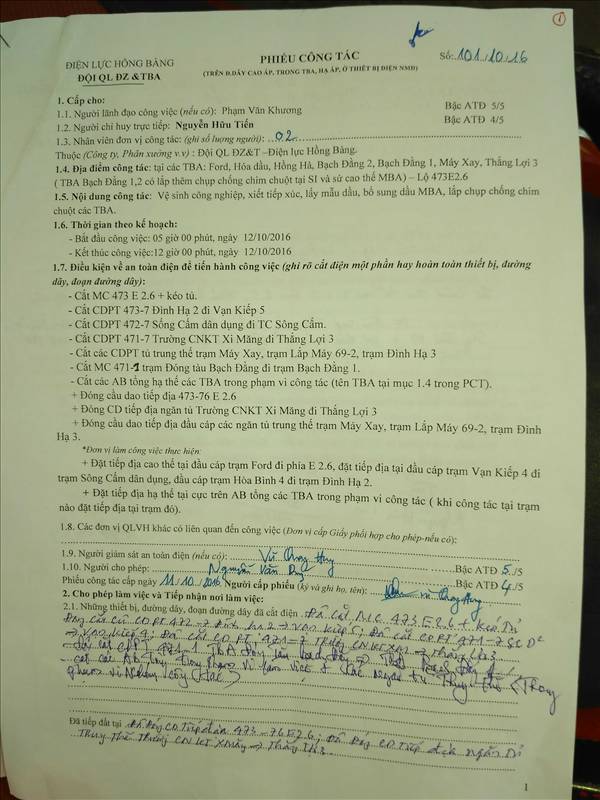 1
ĐIỆN LỰC HỒNG BÀNG
ĐỘI QL ĐZ &TBA
PHIẾU CÔNG TÁC
(TRÊN Đ.DÂY CAO ÁP, TRONG TBA, HẠ ÁP, Ở THIẾT BỊ ĐIỆN NMĐ)
Số: 101/10/16
1. Cấp cho:
1.1. Người lãnh đạo công việc (nếu có): Phạm Văn Khương Bậc ATĐ 5/5
1.2. Người chỉ huy trực tiếp: Nguyễn Hữu Tiến Bậc ATĐ 4/5
1.3. Nhân viên đơn vị công tác: (ghi số lượng người): 02
Thuộc (Công ty, Phân xưởng v.v) : Đội QL ĐZ&T –Điện lực Hồng Bàng.
1.4. Địa điểm công tác: tại các TBA: Ford, Hóa dầu, Hồng Hà, Bạch Đằng 2, Bạch Đằng 1, Máy Xay, Thắng Lợi 3
( TBA Bạch Đằng 1,2 có lắp thêm chụp chống chim chuột tại SI và sứ cao thế MBA) – Lộ 473E2.6
1.5. Nội dung công tác: Vệ sinh công nghiệp, xiết tiếp xúc, lấy mẫu dầu, bổ sung dầu MBA, lắp chụp chống chim
chuột các TBA.
1.6. Thời gian theo kế hoạch:
- Bắt đầu công việc: 05 giờ 00 phút, ngày 12/10/2016
- Kết thúc công việc:12 giờ 00 phút, ngày 12/10/2016
1.7. Điều kiện về an toàn điện để tiến hành công việc (ghi rõ cắt điện một phần hay hoàn toàn thiết bị, đường
dây, đoạn đường dây):
- Cắt MC 473 E 2.6 + kéo tủ.
- Cắt CDPT 473-7 Đình Hạ 2 đi Vạn Kiếp 5
- Cắt CDPT 472-7 Sống Cấm dân dụng đi TC Sông Cấm.
- Cắt CDPT 471-7 Trường CNKT Xi Măng đi Thắng Lợi 3
- Cắt các CDPT tủ trung thế trạm Máy Xay, trạm Lắp Máy 69-2, trạm Đình Hạ 3
- Cắt MC 471-1 trạm Đóng tàu Bạch Đằng đi trạm Bạch Đằng 1.
- Cắt các AB tổng hạ thế các TBA trong phạm vi công tác (tên TBA tại mục 1.4 trong PCT).
+ Đóng cầu dao tiếp địa 473-76 E 2.6
+ Đóng CD tiếp địa ngăn tủ Trường CNKT Xi Măng đi Thắng Lợi 3
+ Đóng cầu dao tiếp địa đầu cáp các ngăn tủ trung thế trạm Máy Xay, trạm Lắp Máy 69-2, trạm Đình
Hạ 3.
*Đơn vị làm công việc thực hiện:
+ Đặt tiếp địa cao thế tại đầu cáp trạm Ford đi phía E 2.6, đặt tiếp địa tại đầu cáp trạm Vạn Kiếp 4 đi
trạm Sông Cấm dân dụng, đầu cáp trạm Hòa Bình 4 đi trạm Đình Hạ 2.
+ Đặt tiếp địa hạ thế tại cực trên AB tổng các TBA trong phạm vi công tác ( khi công tác tại trạm
nào đặt tiếp địa tại trạm đó).
1.8. Các đơn vị QLVH khác có liên quan đến công việc (Đơn vị cấp Giấy phối hợp cho phép-nếu có):
1.9. Người giám sát an toàn điện (nếu có): Vũ Quang Huy Bậc ATĐ 5/5
1.10. Người cho phép: Nguyễn Văn Bậc ATĐ 4/5
Phiếu công tác cấp ngày 11/10/2016 Người cấp phiếu (ký và ghi họ, tên): Vũ Quang Huy
2. Cho phép làm việc và Tiếp nhận nơi làm việc:
2.1. Những thiết bị, đường dây, đoạn đường dây đã cắt điện Đã cắt MC 473 E2.6 + kéo tủ
Đã tiếp đất tại Đã đóng CD tiếp địa 473-76E2.6; Đã đóng CD tiếp địa ngăn tủ
1